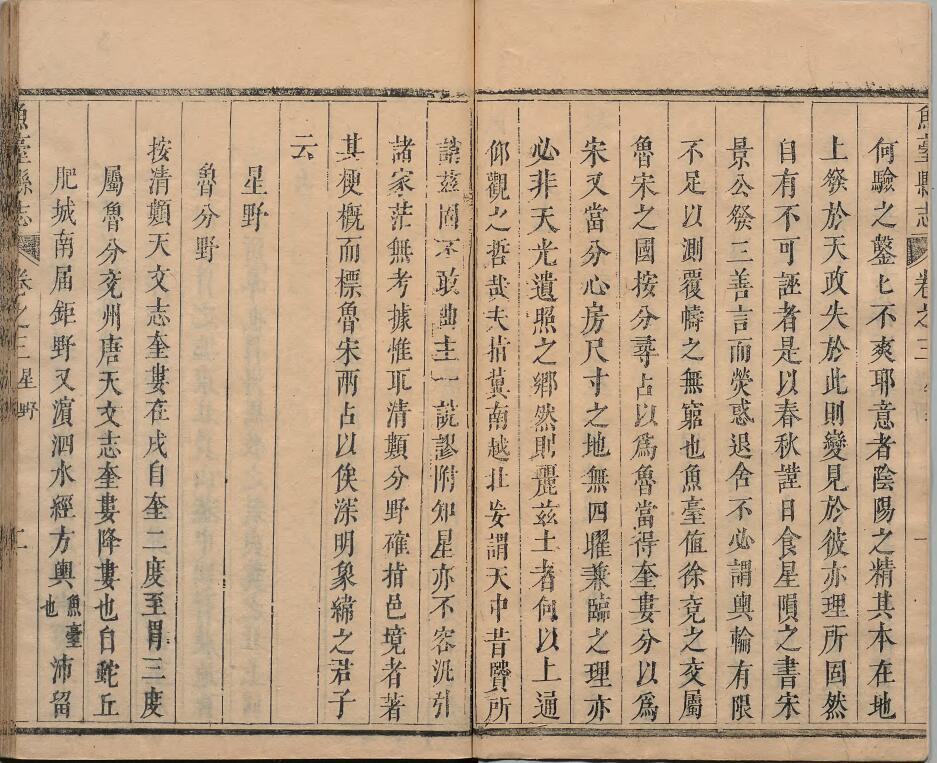 魚臺縣志
卷之三
一
何驗之鑿匕不爽耶意者陰陽之精其本在地
上發於天政失於此則變見於彼亦理所固然
自有不可誣者是以春秋謹日食星隕之書宋
景公發三善言而熒惑退舍不必謂輿輪有限
不足以測覆幬之無窮也魚臺值徐兗之交屬
魯宋之國按分尋占以爲魯當得奎婁分以爲
宋又當分心房尺寸之地無四曜兼臨之理亦
必非天光遺照之鄉然則麗茲土者何以上通
仰觀之哲哉夫指冀南越北妄謂天中昔賢所
誚茲固不敢曲主一說謬附知星亦不容汎引
諸家茫無考據惟取清類分野確指邑境者著
其梗概而標魯宋兩占以俟深明象緯之君子
云
星野
魯分野
按清類天文志奎婁在戌自奎二度至胃三度
屬魯分兗州唐天文志奎婁降婁也自蛇丘
肥城南届鉅野又濵泗水經方輿魚臺也沛留
魚臺縣志
卷之三星野
二